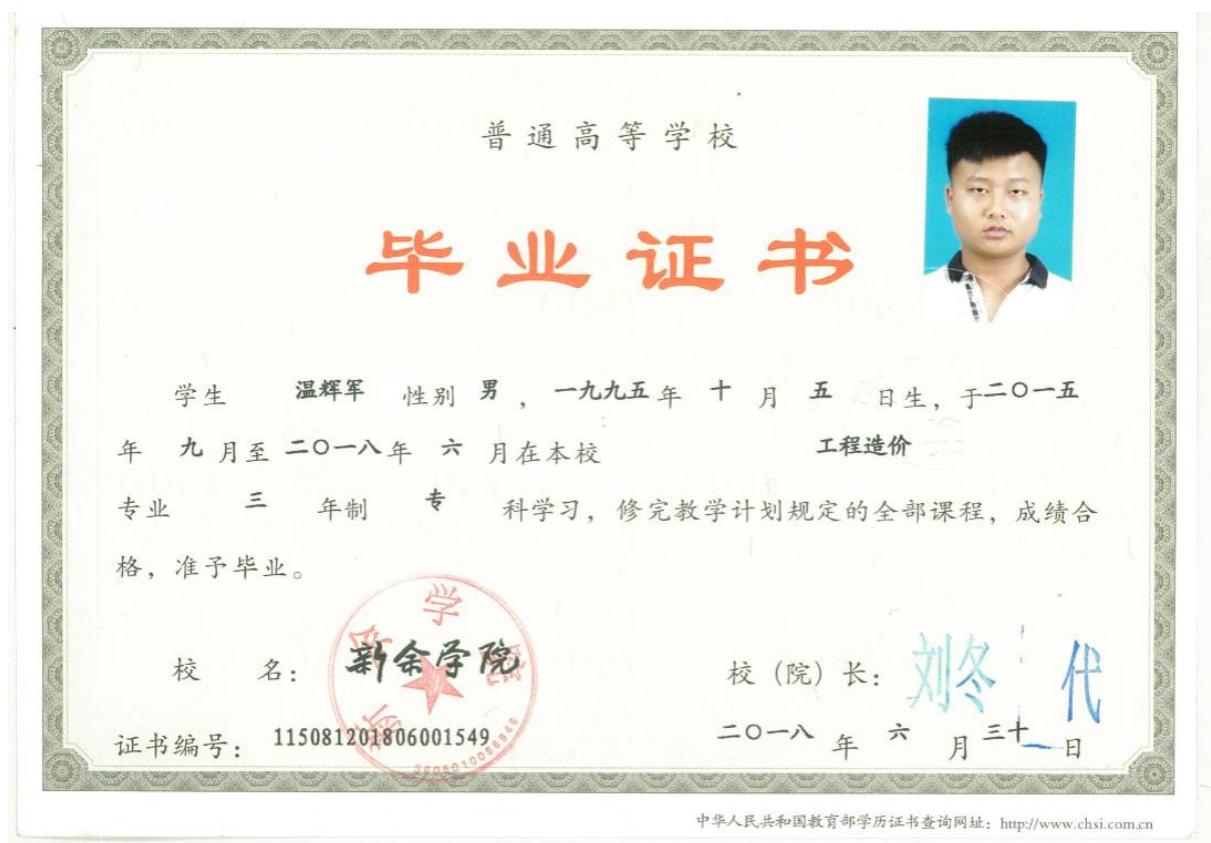 普通高等学校
毕业证书
学生 温辉军 性别 男 ，一九九五 年 十 月 五 日生，于二〇一五
年 九 月至 二〇一八年 六 月在本校 工程造价
专业 三 年制 专 科学习，修完教学计划规定的全部课程，成绩合
格，准予毕业。
校 名：新余学院
新余学院
校（院）长：刘冬 代
证书编号：115081201806001549
二〇一八 年 六 月 三十 日
中华人民共和国教育部学历证书查询网址：http://www.chsi.com.cn